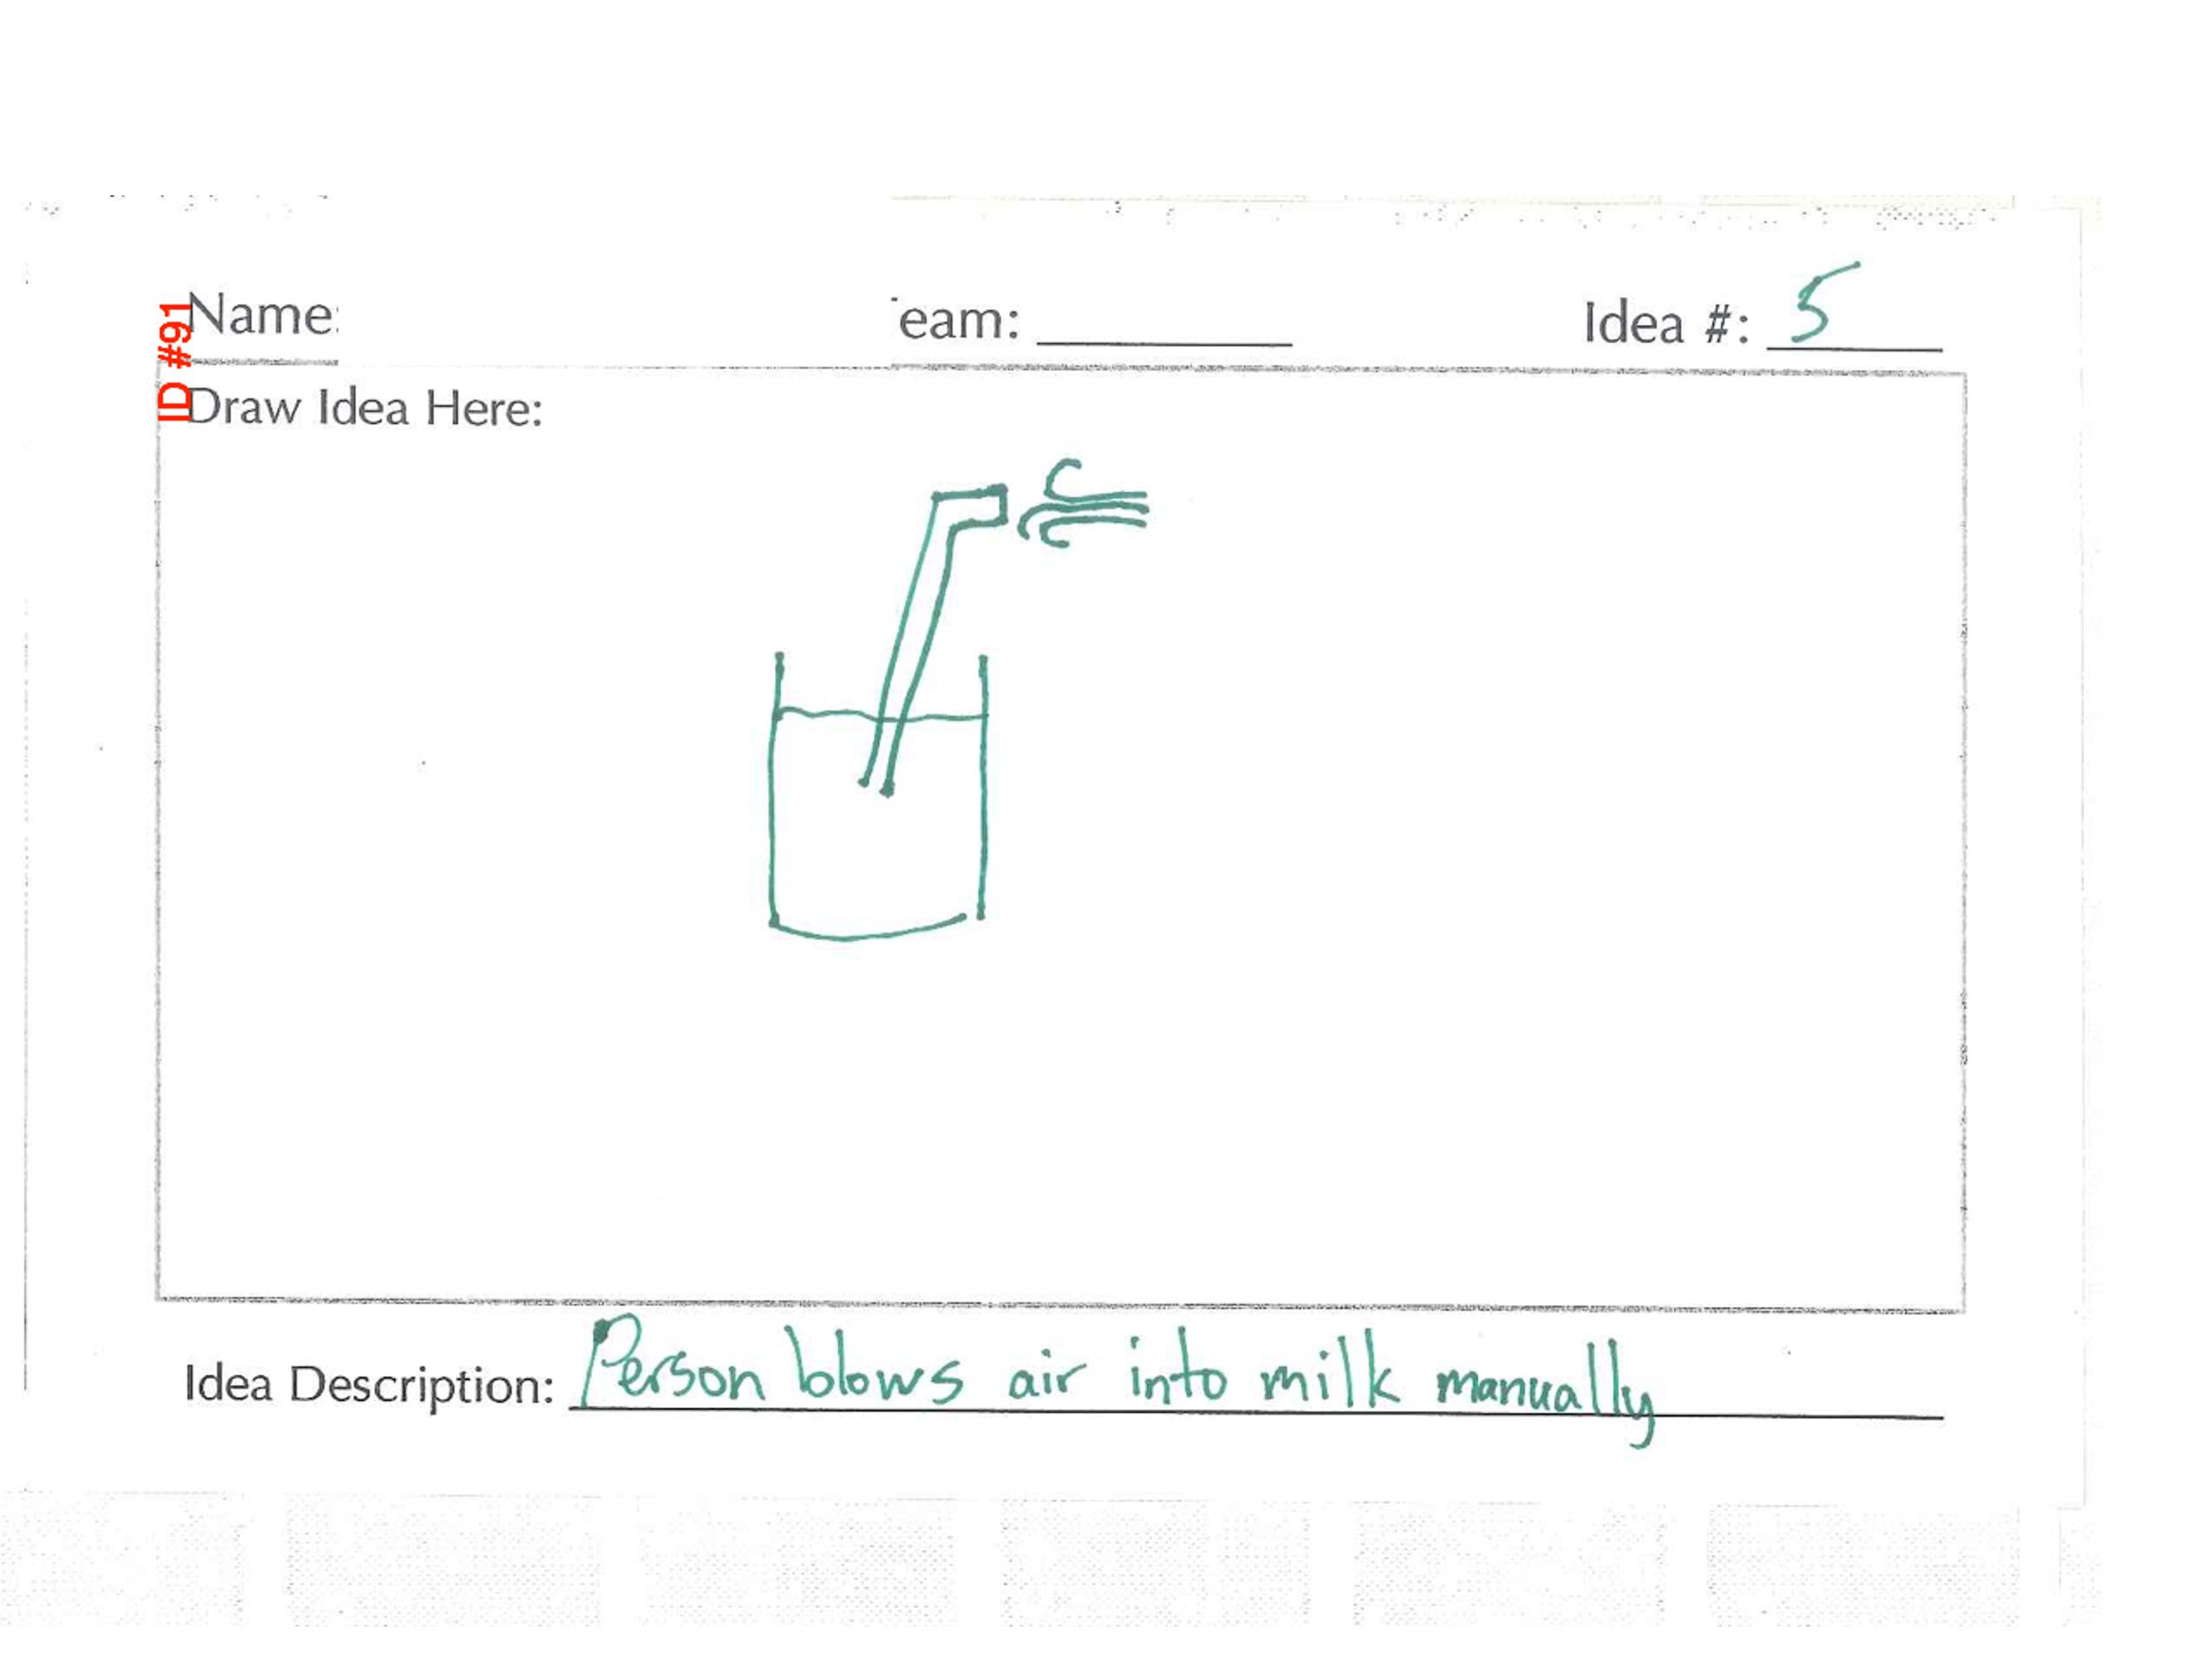 ID #91
Name:
eam:
Idea #: 5
Draw Idea Here:
Idea Description: Person blows air into milk manually